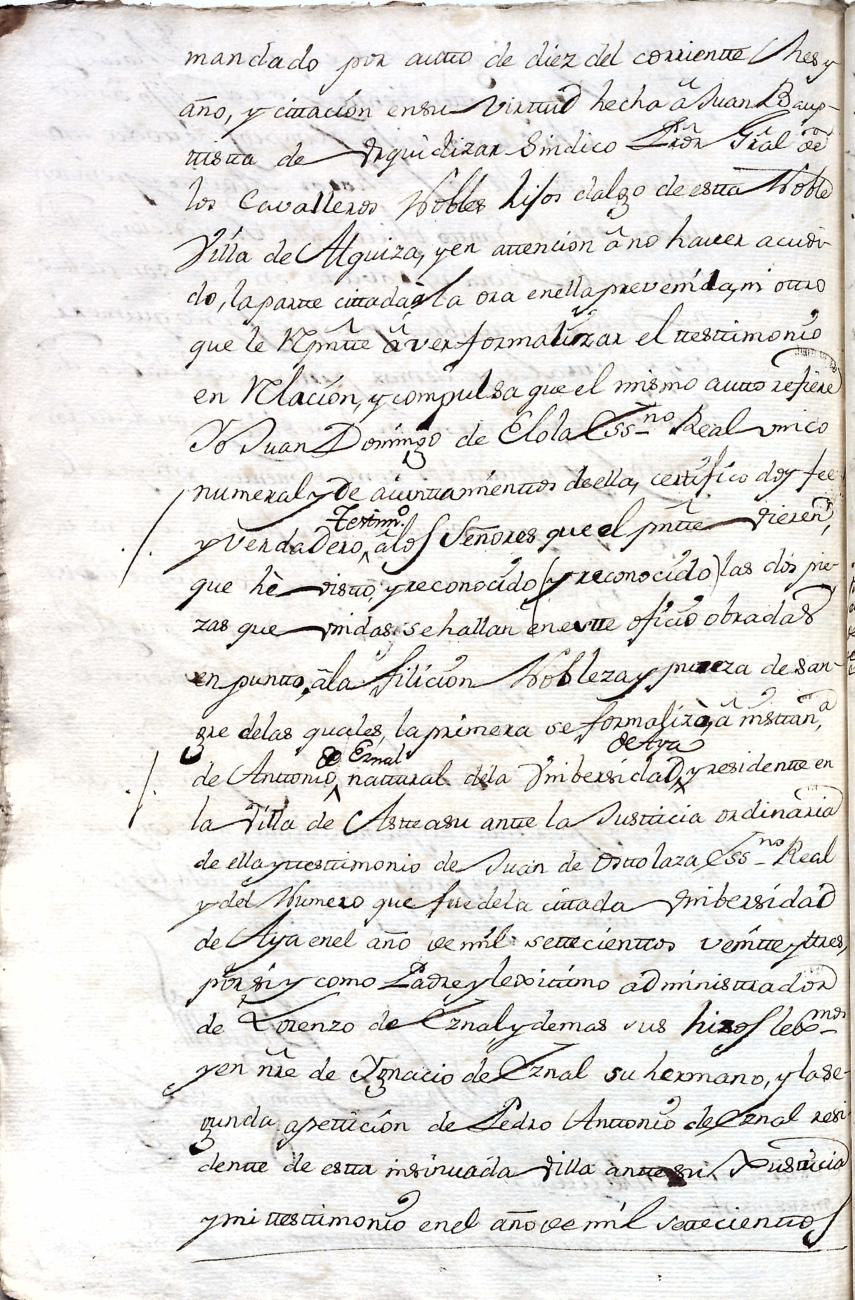 mandado por autto de diez del corriente Mes y
año, y cittación en su virttud hecha â Juan Baup-
tista de Vrquidizar Sindico Prõr Grâl de
los Cavalleros Nobles hijos dalgo de estta Noble
Villa de Alquiza, y en attención â no haver acudi-
do, la partte cittada â la ora en ella prevenida, ni ottro
que le Rpntte â ver formalizar el testtimonio
en Rlación, y compulsa que el mismo autto refiere
Yo Juan Domingo de Elola Essno Real vnico
numeral y de aiunttamienttos de ella, certtifico doy fee
Testimo
y verdadero, â los Señores que el pntte vieren,
que hê visto, y reconocido (y reconocido) las dos pie-
zas que vnidas se hallan en estte oficio obradas
en puntto, â la filición Nobleza y pureza de san-
gre de las quales, la primera se formalizò, â insttana
de Eznal de Aya
de Anttonio, natural dela Vnibersidad, y residentte en
la Villa de Astteasu antte la Justticia ordinaria
de ella y testtimonio de Juan de Osttolaza Essno Real
y del Numero que fue dela cittada Vnibersidad
de Aya en el año de mil settecienttos veintte y ttres,
por si y como Padre y lexittimo administtrador
de Lorenzo de Eznal y demas sus hixos lexmos
y en nre de Ygnacio de Eznal su hermano, y la se-
gunda apettición de Pedro Anttonio de Eznal resi
dentte de estta insinuada Villa antte su Justticia
y mi testtimonio en el año de mil settecienttos